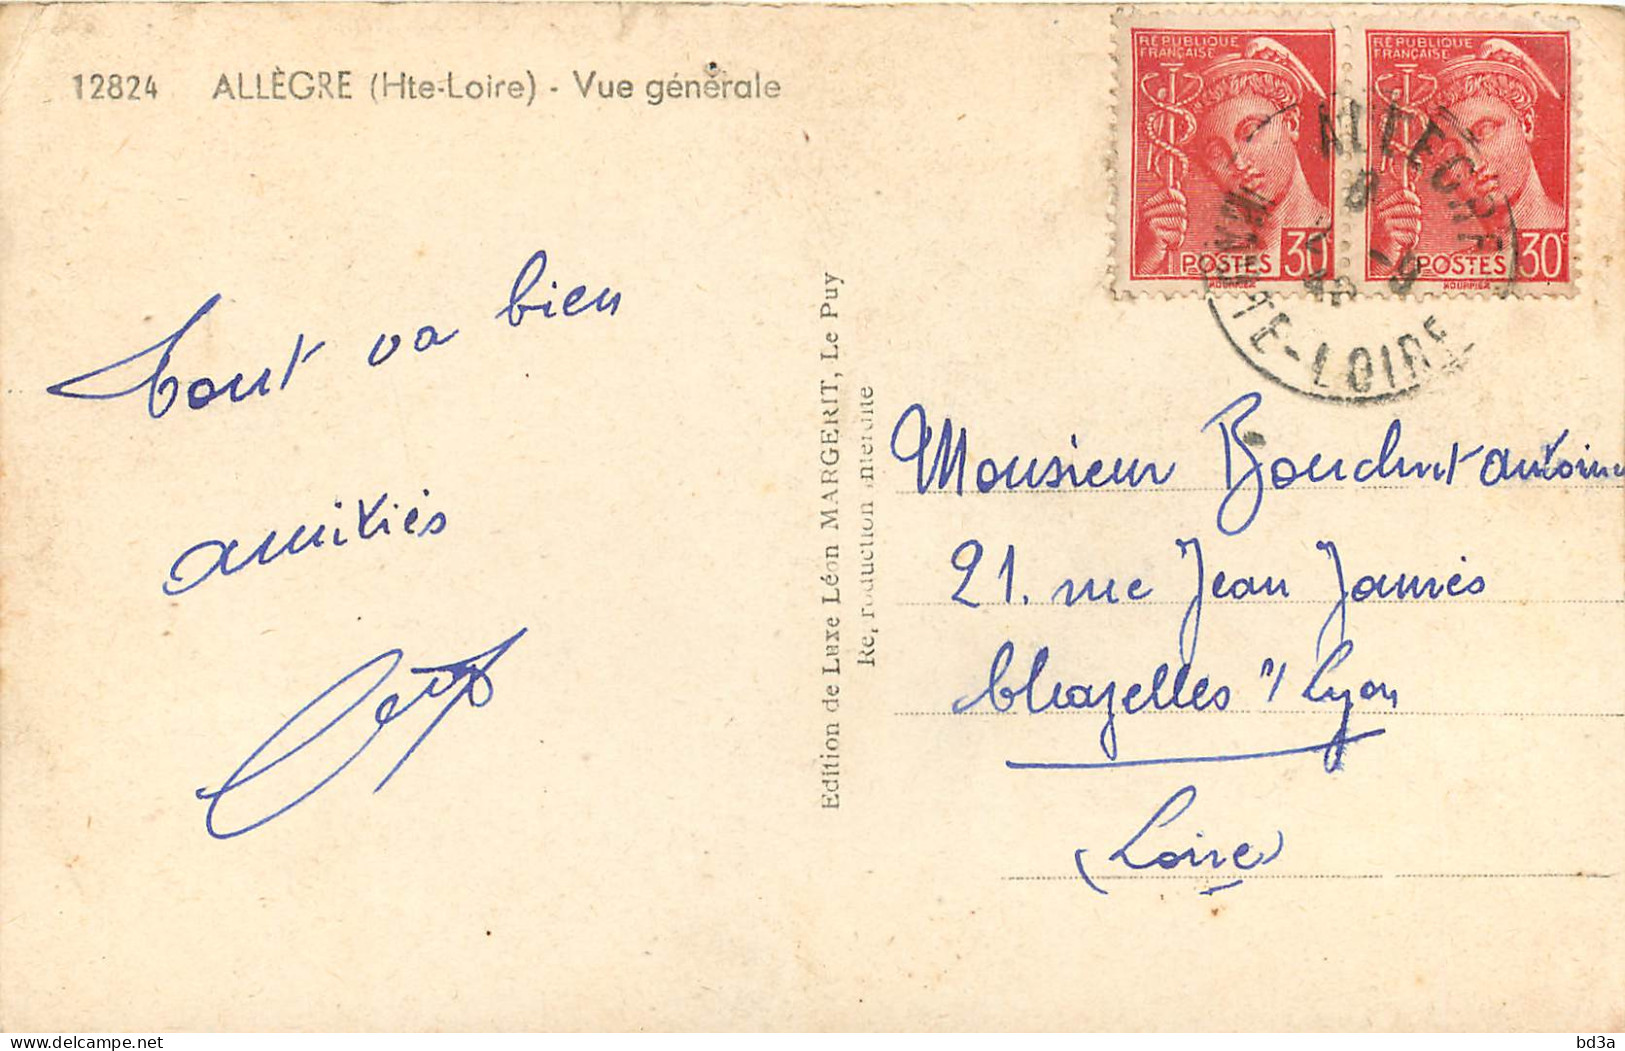 12824 ALLÈGRE (Hte-Loire) - Vue générale
RÉPUBLIQUE
FRANÇAISE
30c
POSTES
RÉPUBLIQUE
FRANÇAISE
30c
POSTES
ALLEGRE
HTE-LOIRE
tout va bien
amitiés
Edition de Luxe Léon MARGERIT, Le Puy
Reproduction interdite
Monsieur antoine
21. rue Jean Jaurès
Chazelles s/ Lyon
(Loire)
delcampe.net
bd3a